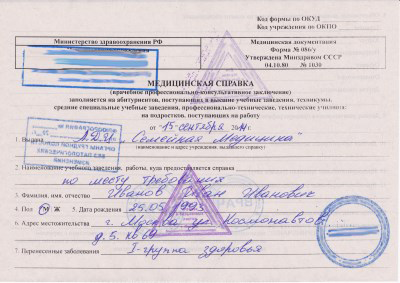 Код формы по ОКУД
Код учреждения по ОКПО
Министерство здравоохранения РФ
Медицинская документация
Форма № 086/у
Утверждена Минздравом СССР
04.10.80 № 1030
МЕДИЦИНСКАЯ СПРАВКА
(врачебное профессионально-консультативное заключение)
заполняется на абитуриентов, поступающих в высшие учебные заведения, техникумы,
средние специальные учебные заведения, профессионально-технические, технические училища;
на подростков, поступающих на работу
от "15" сентября
1. Выдана "Семейная Медицина"
(наименование и адрес учреждения, выдавшего справку)
2. Наименование учебного заведения, работы, куда предоставляется справка
по месту требования
3. Фамилия, имя, отчество Иванов Иван Иванович
4. Пол М Ж 5. Дата рождения 25.05.1993
6. Адрес местожительства г. Москва ул. Космонавтов
д. 5. кв. 69
7. Перенесенные заболевания I-группа здоровья